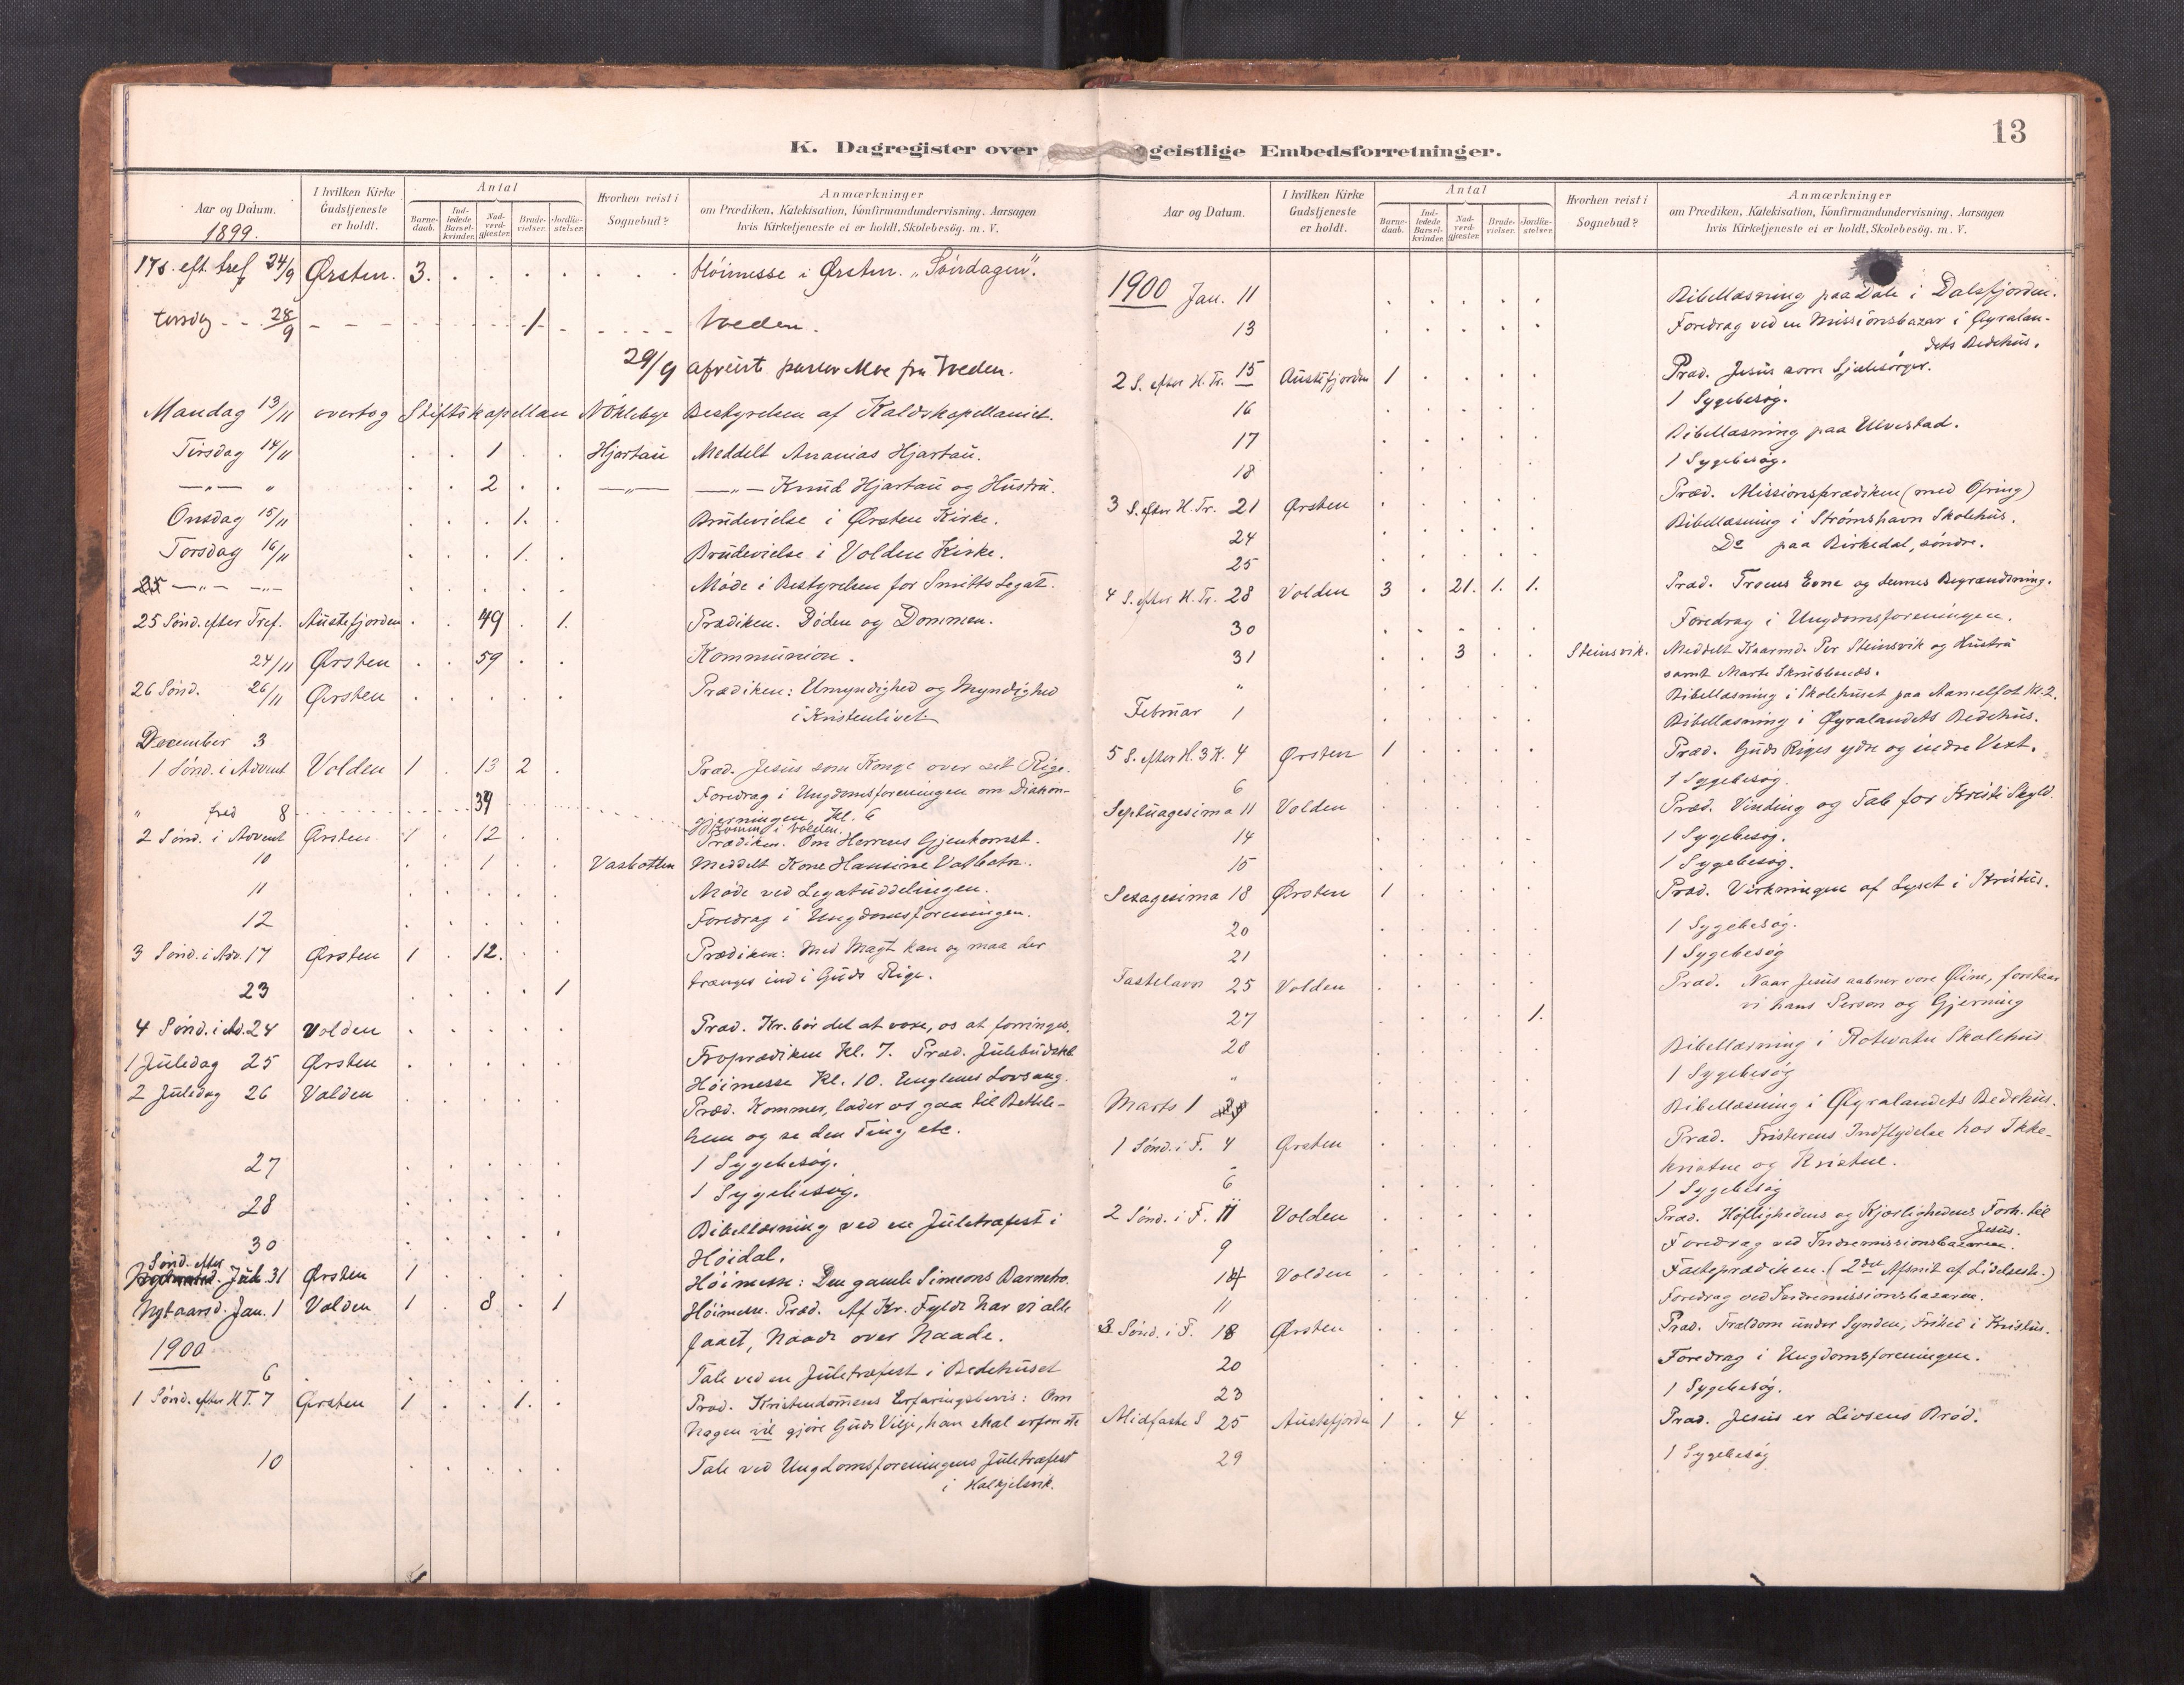 13
K. Dagregister over geistlige Embedsforretninger.
Aar og Datum. I hvilken Kirke Gudstjeneste er holdt. Antal Barnedaab. Indledede Barselkvinder. Nadverdgjester. Brudevielser. Jordfæstelser. Hvorhen reist i Sognebud? Anmærkninger om Prædiken, Katekisation, Konfirmandundervisning. Aarsagen hvis Kirketjeneste ei er holdt, Skolebesög. m. V.
1899.
17 s. eft. tref 24/9 Ørsten. 3. Höimesse i Ørsten. "Söndagen".
torsdag 28/9 1
29/9 afreist pastor Moe fra
Mandag 13/11 overtog Stiftskapellan Nöklebye Bestyrelsen af Kaldskapellaniet.
Tirsdag 14/11 1 Hjartau Meddelt Ananias Hjartau.
—„— „ 2 —„— —„— Knud Hjartau og Hustru.
Onsdag 15/11 1. Brudevielse i Ørsten Kirke.
Torsdag 16/11 1. Brudevielse i Volden Kirke.
—„— —„— Möde i Bestyrelsen for Smitts Legat.
25 Sönd. efter Tref. Austefjorden 49 1. Prædiken. Döden og Dommen.
24/11 Ørsten 59 Kommunion.
26 Sönd. 26/11 Ørsten Prædiken: Umyndighed og Myndighed
i Kristenlivet
December 3
1 Sönd. i Advent Volden 1 13 2 Præd. Jesus som Konge over set Rige.
Foredrag i Ungdomsforeningen om Diakon-
„ fred 8 39 gjerningen Kl. 6
Komm. i Volden.
2 Sönd. i Advent Ørsten 1 12 Prædiken. Om Herrens Gjenkomst.
10 1 Vasbotten Meddelt Kone Hansine Vasbotn.
11 Möde ved Legatuddelingen.
12 Foredrag i Ungdomsforeningen.
3 Sönd. i Adv. 17 Ørsten 1 12. Prædiken: Med Magt kan og maa der
trænges ind i Guds Rige.
23 1
4 Sönd. i Ad. 24 Volden Præd. Kr. bör det at voxe, os at forringes.
1 Juledag 25 Ørsten Froprædiken Kl. 7. Præd. Julebudskb
Höimesse Kl. 10. Englenes Lovsang.
2 Juledag 26 Volden Præd. Kommer, lader os gaa til Bethle-
hem og se den Ting etc.
27 1 Sygebesög.
28 1 Sygebesög.
30 Bibellæsning ved en Juletræfest i
Höidal.
Sönd. efter
Jul. 31 Ørsten 1 Höimesse: Den gamle Simeons Barnetro.
Nytaarsd. Jan. 1 Volden 1 8 1 Höimesse. Præd. Af Kr. Fylde har vi alle
faaet, Naade over Naade.
1900
6 Tale ved en Juletræfest i Bedehuset
1 Sönd. efter H.T. 7 Ørsten 1 1. Præd. Kristendommens Erfaringsbevis: Om
Nogen vil gjöre Guds Vilje, han skal erfare etc
10 Tale ved Ungdomsforeningens Juletræfest
i Halkjelsvik.
Aar og Datum. I hvilken Kirke Gudstjeneste er holdt. Antal Barnedaab. Indledede Barselkvinder. Nadverdgjester. Brudevielser. Jordfæstelser. Hvorhen reist i Sognebud? Anmærkninger om Prædiken, Katekisation, Konfirmandundervisning. Aarsagen hvis Kirketjeneste ei er holdt, Skolebesög. m. V.
1900 Jan. 11 Bibellæsning paa Dale i Dalsfjorden.
13 Foredrag ved en Missionsbazar i Øyralan-
dets Bedehus.
2 S. efter H. Tr. 15 Austefjorden 1 Præd. Jesus som Sjælesörger.
16 1 Sygebesög.
17 Bibellæsning paa Ulvestad.
18 1 Sygebesög.
3 S. efter H. Tr. 21 Ørsten Præd. Missionsprædiken (med Ofring)
24 Bibellæsning i Strömshavn Skolehus.
25 Do paa Birkedal, söndre.
4 S. efter H. Tr. 28 Volden 3 21. 1. 1. Præd. Troens Evne og dennes Begrændsning.
30 Foredrag i Ungdomsforeningen.
31 3 Steinsvik. Meddelt Kaarmd. Per Steinsvik og Hustru
samt Marte Skrubbenes.
„ Bibellæsning i Skolehuset paa Aamelfot Kl. 2.
Februar 1 Bibellæsning i Øyralandets Bedehus.
5 S. efter H. 3 K. 4 Ørsten 1 Præd. Guds Riges ydre og indre Vext.
6 1 Sygebesög.
Septuagesima 11 Volden Præd. Vinding og Tab for Kristi Skyld.
14 1 Sygebesög.
15 1 Sygebesög.
Sexagesima 18 Ørsten 1 Præd. Virkningen af Lyset i Kristus.
20 1 Sygebesög.
21 1 Sygebesög
Fastelavn 25 Volden Præd. Naar Jesus aabner vore Øine, forstaar
vi hans Person og Gjerning
27 1.
28 Bibellæsning i Rotevatn Skolehus
„ 1 Sygebesög
Marts 1 Bibellæsning i Øyralandets Bedehus.
1 Sönd. i F. 4 Ørsten Præd. Fristerens Indflydelse hos Ikke-
kristne og Kristne.
6 1 Sygebesög
2 Sönd. i F. 11 Volden Præd. Höflighedens og Kjærlighedens Forh. til
Jesus.
9 Foredrag ved Indremissionsbazaren.
14 Volden Fasteprædiken. (2den Afsnit af Lidelsesh.)
11 Foredrag ved Indremissionsbazaren.
3 Sönd. i F. 18 Ørsten Præd. Trældom under Synden, Frihed i Kristus.
20 Foredrag i Ungdomsforeningen.
23 1 Sygebesög.
Midfaste S 25 Austefjorden 1 4 Præd. Jesus er Livsens Bröd.
29 1 Sygebesög